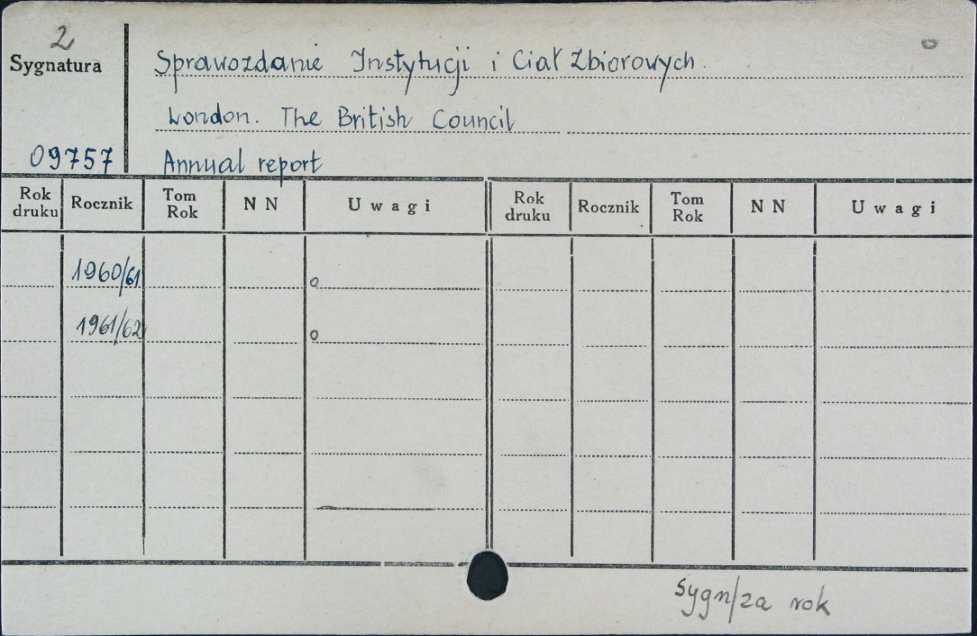 2
Sygnatura
Sprawozdanie Instytucji i Ciał Zbiorowych.
London. The British Council
09757
Annual report
Rok druku Rocznik Tom Rok NN Uwagi Rok druku Rocznik Tom Rok NN Uwagi
1960/61 o
1961/62 o
Sygn/za rok